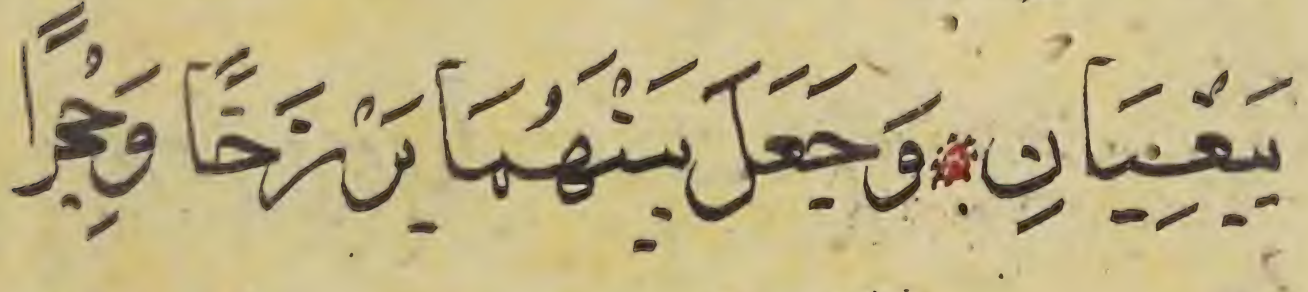 يَبْغِيَانِ وَجَعَلَ بَيْنَهُمَا بَرْزَخًا وَحِجْرًا